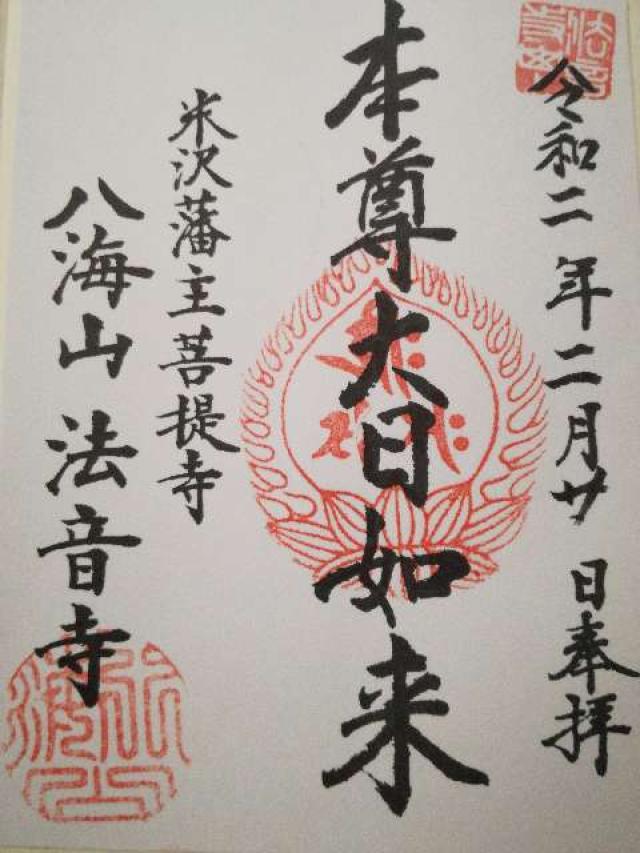 令和二年二月廿日奉拝
本尊大日如来
米沢藩主菩提寺
八海山法音寺